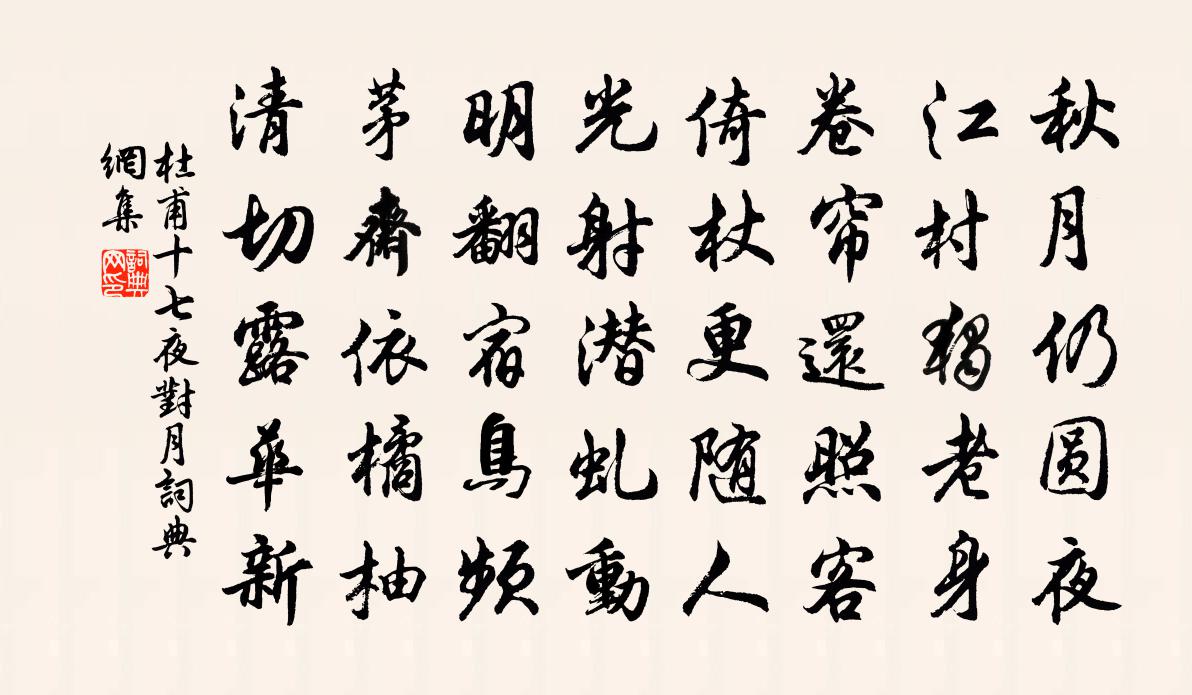 秋月仍圆夜
江村獨老身
卷帘還照客
倚杖更随人
光射潜虬動
明翻宿鳥頻
茅齋依橘柚
清切露華新
杜甫十七夜對月詞典
網集
詞典
网印